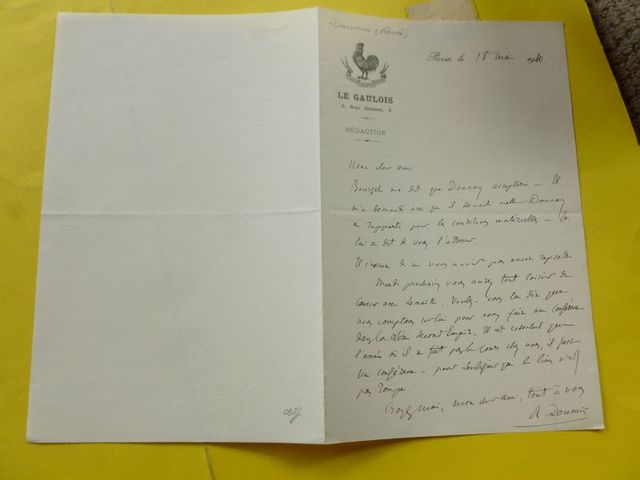 Doumic (René)
Paris le 18 mai
LE GAULOIS
2, Rue Drouot, 2
RÉDACTION
Mon cher ami
Bourget me dit que Donnay acceptera — Il
m'a demandé avec qui il devait mettre Donnay
en rapports pour les conditions matérielles — Je
lui ai dit de vous l'adresser.
Il s'excuse de ne vous avoir pas encore répondu
Mardi prochain vous aurez tout loisir de
causer avec Lemaître. Voulez-vous lui dire que
nous comptons sur lui pour nous faire une conférence
dans la série second Empire. Il est essentiel que
l'année où il ne fait pas le cours chez nous, il fasse
une conférence — pour souligner que le lien n'est
pas rompu.
Croyez-moi, mon cher ami, tout à vous
R. Doumic